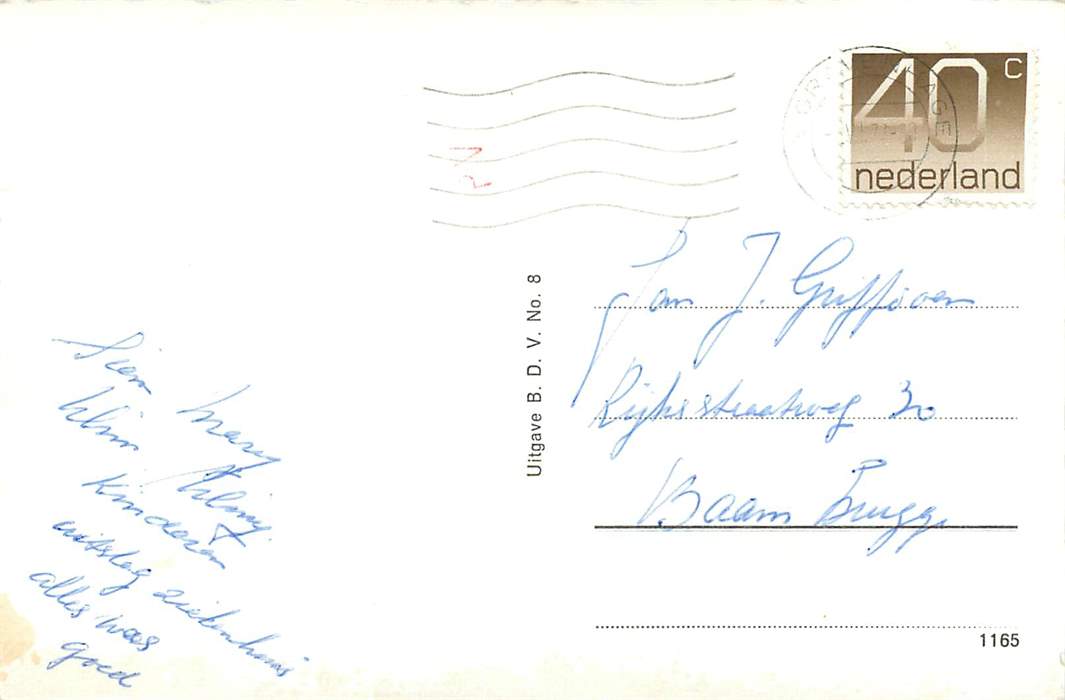 40 c
nederland
GRAVENHAGE
Uitgave B. D. V. No. 8
Jan J. Griffioen
Rijksstraatweg 30
Baam Brugge
Mary
Wim
Kinderen
uitslag ziekenhuis
alles was
goed
1165